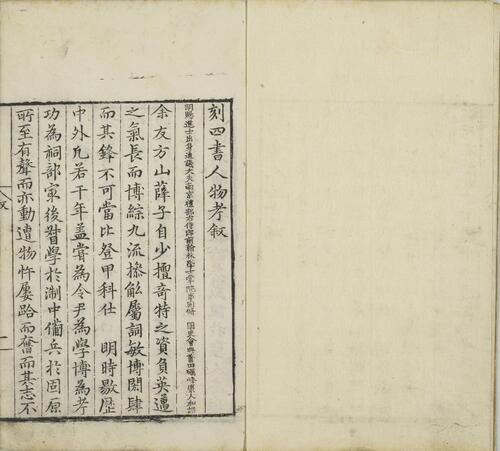 刻四書人物考叙
明賜進士出身通議大夫南京禮部右侍郎前翰林學士掌院事同修 國史會典莆田
余友方山薛子自少擅奇特之資負英邁
之氣長而博綜九流摻觚屬詞敏博閎肆
而其鋒不可當比登甲科仕 明時歇歷
中外凢若干年盖嘗為令尹為學博為考
功為祠部宷後督學於淛中備兵於固原
所至有聲而亦動遭物忤屢踣而奮而其志不
叙
一